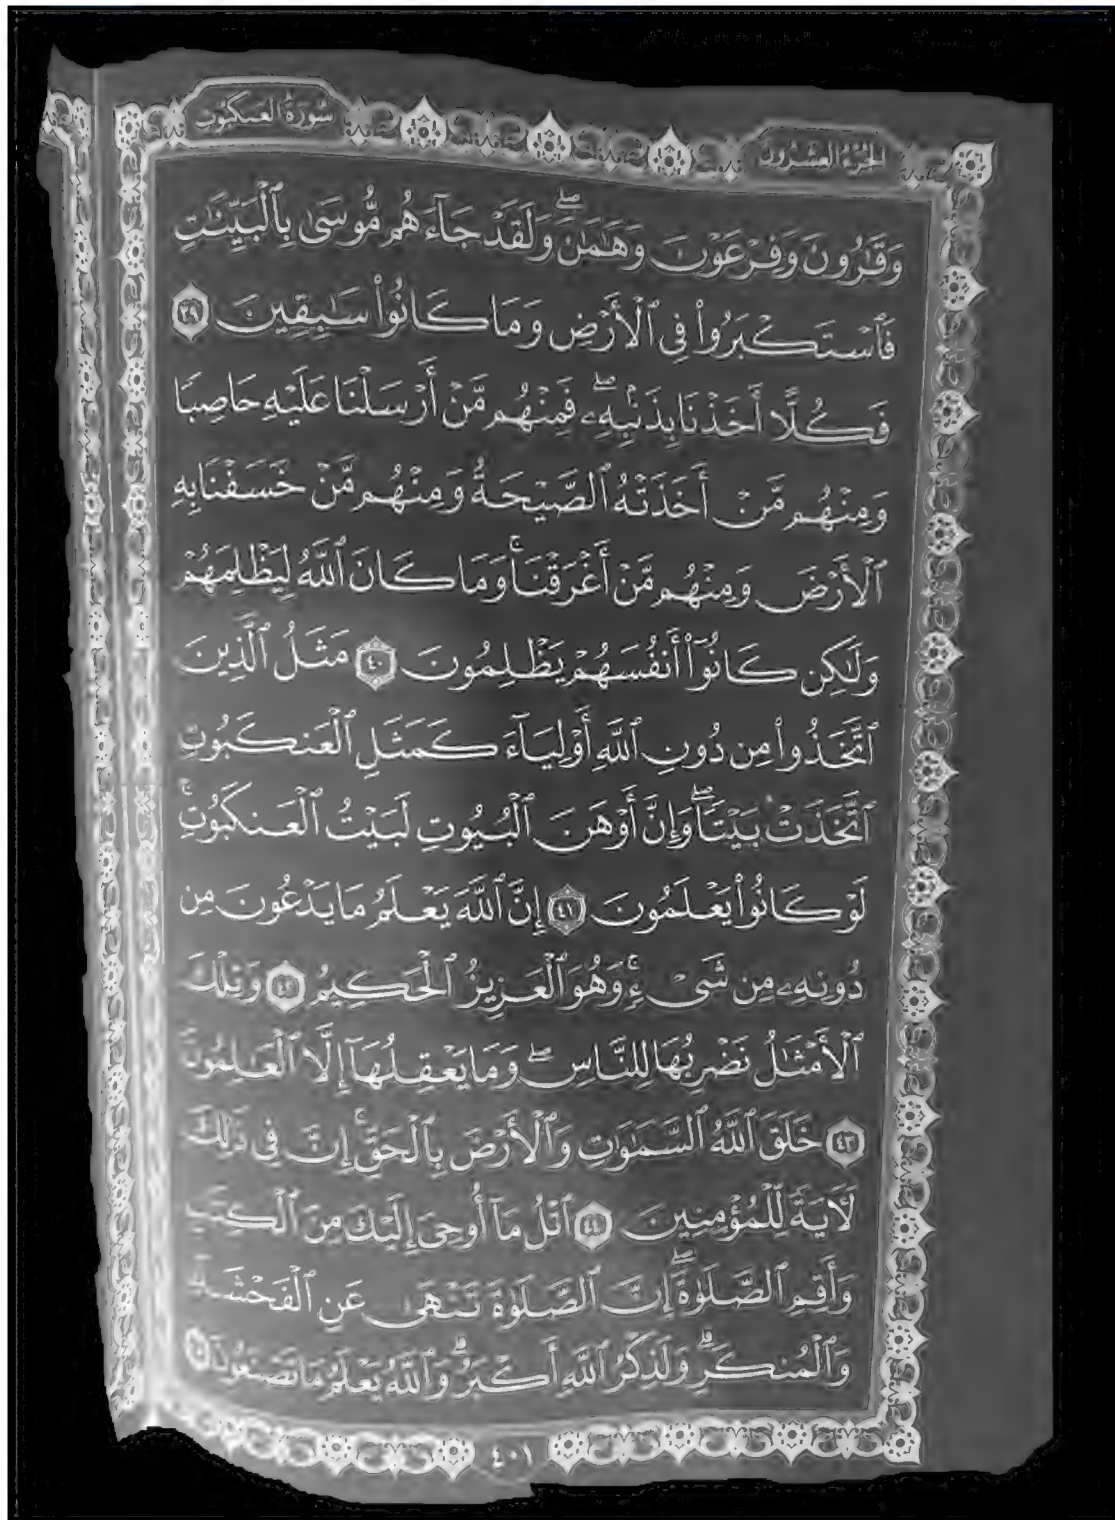 الجزء العشرون
سورة العنكبوت
وَقَٰرُونَ وَفِرْعَوْنَ وَهَٰمَٰنَۖ وَلَقَدْ جَآءَهُم مُّوسَىٰ بِٱلْبَيِّنَٰتِ
فَٱسْتَكْبَرُوا۟ فِى ٱلْأَرْضِ وَمَا كَانُوا۟ سَٰبِقِينَ ٣٩
فَكُلًّا أَخَذْنَا بِذَنۢبِهِۦۖ فَمِنْهُم مَّنْ أَرْسَلْنَا عَلَيْهِ حَاصِبًا
وَمِنْهُم مَّنْ أَخَذَتْهُ ٱلصَّيْحَةُ وَمِنْهُم مَّنْ خَسَفْنَا بِهِ
ٱلْأَرْضَ وَمِنْهُم مَّنْ أَغْرَقْنَاۚ وَمَا كَانَ ٱللَّهُ لِيَظْلِمَهُمْ
وَلَٰكِن كَانُوٓا۟ أَنفُسَهُمْ يَظْلِمُونَ ٤٠ مَثَلُ ٱلَّذِينَ
ٱتَّخَذُوا۟ مِن دُونِ ٱللَّهِ أَوْلِيَآءَ كَمَثَلِ ٱلْعَنكَبُوتِ
ٱتَّخَذَتْ بَيْتًاۖ وَإِنَّ أَوْهَنَ ٱلْبُيُوتِ لَبَيْتُ ٱلْعَنكَبُوتِۚ
لَوْ كَانُوا۟ يَعْلَمُونَ ٤١ إِنَّ ٱللَّهَ يَعْلَمُ مَا يَدْعُونَ مِن
دُونِهِۦ مِن شَىْءٍۚ وَهُوَ ٱلْعَزِيزُ ٱلْحَكِيمُ ٤٢ وَتِلْكَ
ٱلْأَمْثَٰلُ نَضْرِبُهَا لِلنَّاسِۖ وَمَا يَعْقِلُهَآ إِلَّا ٱلْعَٰلِمُونَ
٤٣ خَلَقَ ٱللَّهُ ٱلسَّمَٰوَٰتِ وَٱلْأَرْضَ بِٱلْحَقِّۚ إِنَّ فِى ذَٰلِكَ
لَءَايَةً لِّلْمُؤْمِنِينَ ٤٤ ٱتْلُ مَآ أُوحِىَ إِلَيْكَ مِنَ ٱلْكِتَٰبِ
وَأَقِمِ ٱلصَّلَوٰةَۖ إِنَّ ٱلصَّلَوٰةَ تَنْهَىٰ عَنِ ٱلْفَحْشَآءِ
وَٱلْمُنكَرِۗ وَلَذِكْرُ ٱللَّهِ أَكْبَرُۗ وَٱللَّهُ يَعْلَمُ مَا تَصْنَعُونَ ٤٥
٤٠١